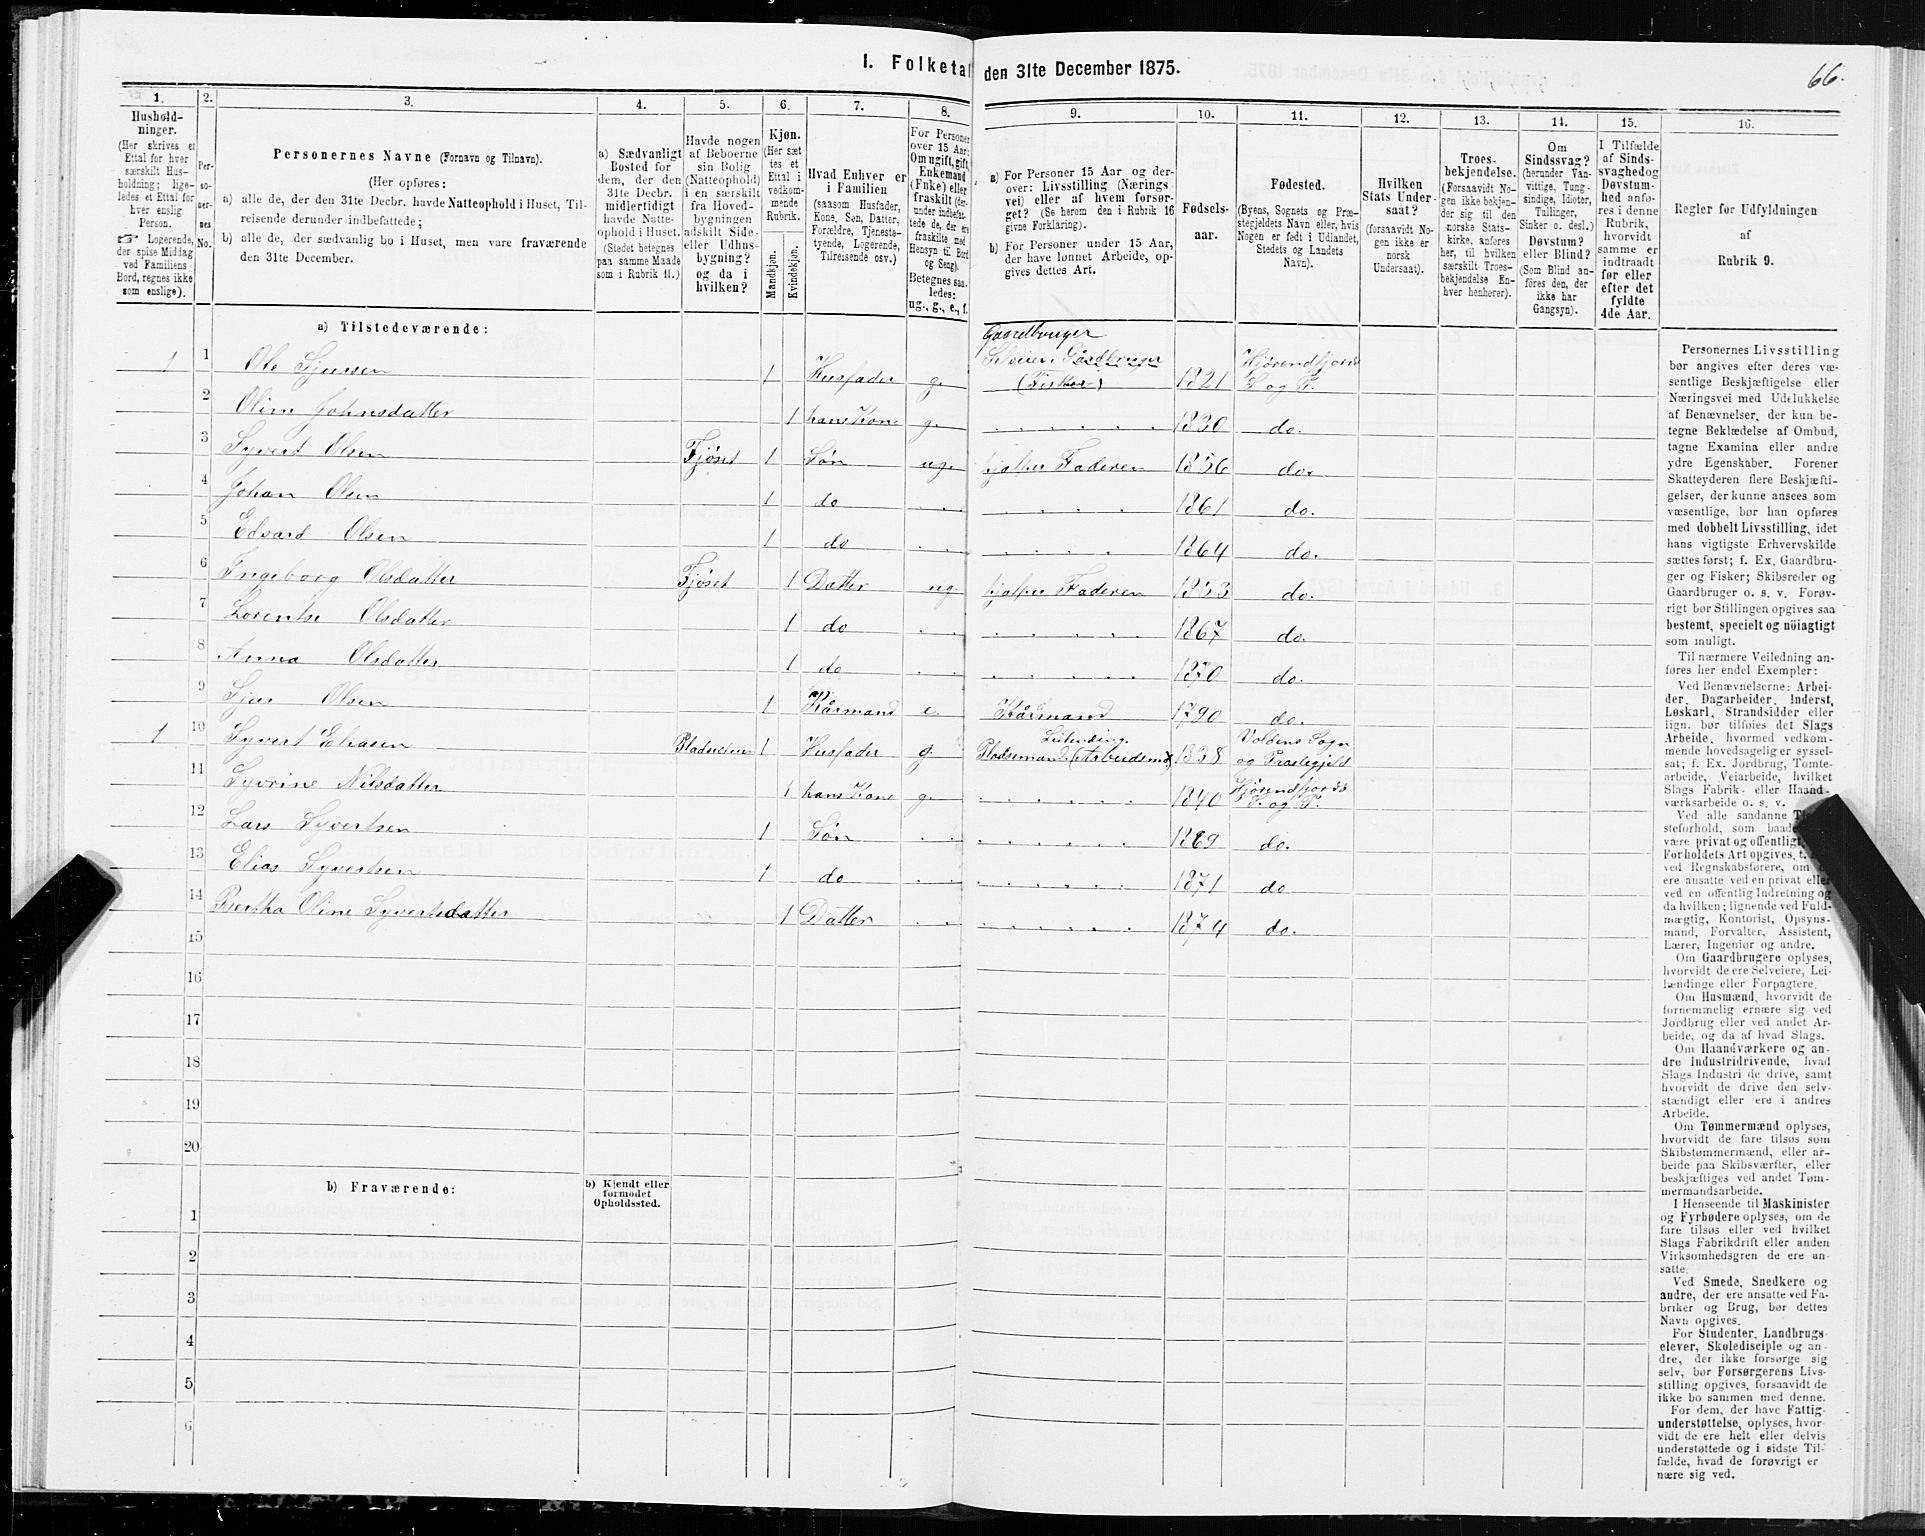 I. Folketal den 31te December 1875.
66.
1.
Hushold-
ninger.
(Her skrives et
Ettal for hver
særskilt Hus-
holdning; lige-
ledes et Ettal for
hver enslig
Person.
☞ Logerende,
der spise Middag
ved Familiens
Bord, regnes ikke
som enslige).
2.
Per-
so-
ner-
nes
No.
3.
Personernes Navne (Fornavn og Tilnavn).
(Her opføres:
a) alle de, der den 31te Decbr. havde Natteophold i Huset, Til-
reisende derunder indbefattede;
b) alle de, der sædvanlig bo i Huset, men vare fraværende
den 31te December.
4.
a) Sædvanligt
Bosted for
dem, der den
31te Decbr.
midlertidigt
havde Natte-
ophold i Huset.
(Stedet betegnes
paa samme Maade
som i Rubrik 11.)
5.
Havde nogen
af Beboerne
sin Bolig
(Natteophold)
i en særskilt
fra Hoved-
bygningen
adskilt Side-
eller Udhus-
bygning?
og da i
hvilken?
6.
Kjøn.
(Her sæt
tes et
Ettal i
vedkom-
mende
Rubrik.
Mandkjøn.
Kvindekjøn.
7.
Hvad Enhver er
i Familien
(saasom Husfader,
Kone, Søn, Datter,
Forældre, Tjeneste-
tyende, Logerende,
Tilreisende osv.)
8.
For Personer
over 15 Aar:
Om ugift, gift,
Enkemand
(Enke) eller
fraskilt (der-
under indbefat-
tede de, der ere
fraskilte med
Hensyn til Bord
og Seng).
Betegnes saa-
ledes:
ug., g., e., f.
9.
a) For Personer 15 Aar og der-
over: Livsstilling (Nærings-
vei) eller af hvem forsør-
get? (Se herom den i Rubrik 16
givne Forklaring).
b) For Personer under 15 Aar,
der have lønnet Arbeide, op-
gives dettes Art.
10.
Fødsels-
aar.
11.
Fødested.
(Byens, Sognets og Præ-
stegjeldets Navn eller, hvis
Nogen er født i Udlandet,
Stedets og Landets
Navn).
12.
Hvilken
Stats Under-
saat?
(forsaavidt No-
gen ikke er
norsk
Undersaat).
13.
Troes-
bekjendelse.
(Forsaavidt No-
gen ikke bekjen-
der sig til den
norske Stats-
kirke, anføres
her, til hvilken
særskilt Troes-
bekjendelse En-
hver henhører).
14.
Om
Sindssvag?
(herunder Van-
vittige, Tung-
sindige, Idioter,
Tullinger,
Sinker o. desl.)
Døvstum?
eller Blind?
(Som Blind an-
føres den, der
ikke har
Gangsyn).
15.
I Tilfælde
af Sinds-
svaghed og
Døvstum-
hed anfø-
res i denne
Rubrik,
hvorvidt
samme er
indtraadt
før eller
efter det
fyldte
4de Aar.
16.
Regler for Udfyldningen
af
Rubrik 9.
a) Tilstedeværende:
Gaardbruger
1 1 Ole Sjursen 1 Husfader g. Selveier, Gårdbruger (Fisker) 1821 Hjørendfjords S. og P.
2 Oline Johnsdatter 1 hans Kone g. 1830 do.
3 Syvert Olsen Fjøset 1 Søn ug. hjalper Faderen 1856 do.
4 Johan Olsen 1 do 1861 do.
5 Edvard Olsen 1 do 1864 do.
6 Ingeborg Olsdatter Fjøset 1 Datter ug. hjalper Faderen 1853 do.
7 Lorentse Olsdatter 1 do 1867 do.
8 Anna Olsdatter 1 do 1870 do.
9 Sjur Olsen 1 Kårmand e. Kårmand 1790 do.
1 10 Syvert Eliasen Pladsestuen 1 Husfader g. Pladsemand (Arbeidsmd.) 1838 Voldens Sogn og Præstegjeld
11 Syvrine Nilsdatter 1 hans Kone g. 1840 Hjørendfjords S. og P.
12 Lars Syvertsen 1 Søn 1869 do.
13 Elias Syvertsen 1 do 1871 do
14 Bertha Oline Syvertsdatter 1 Datter 1874 do.
15
16
17
18
19
20
b) Fraværende:
b) Kjendt eller
formodet
Opholdssted.
1
2
3
4
5
6
Personernes Livsstilling
bør angives efter deres væ-
sentlige Beskjæftigelse eller
Næringsvei med Udelukkelse
af Benævnelser, der kun be-
tegne Beklædelse af Ombud,
tagne Examina eller andre
ydre Egenskaber. Forener
Skatteyderen flere Beskjæfti-
gelser, der kunne ansees som
væsentlige, bør han opføres
med dobbelt Livsstilling, idet
hans vigtigste Erhvervskilde
sættes først; f. Ex. Gaardbru-
ger og Fisker; Skibsreder og
Gaardbruger o. s. v. Forøv-
rigt bør Stillingen opgives saa
bestemt, specielt og nöiagtigt
som muligt.
Til nærmere Veiledning an-
føres her endel Exempler:
Ved Benævnelserne: Arbei-
der, Dagarbeider, Inderst,
Løskarl, Strandsidder eller
lign. bør tilføies det Slags
Arbeide, hvormed vedkom-
mende hovedsagelig er syssel-
sat; f. Ex. Jordbrug, Tomte-
arbeide, Veiarbeide, hvilket
Slags Fabrik- eller Haand-
værksarbeide o. s. v.
Ved alle saadanne
steforhold, som baade
være privat og offentligt,
Forholdets Art opgives,
ved Regnskabsførere, om
ere ansatte ved en privat eller
ved en offentlig Indretning og
da hvilken; lignende ved Fuld-
mægtig, Kontorist, Opsyns-
mand, Forvalter, Assistent,
Lærer, Ingeniør og andre.
Om Gaardbrugere oplyses,
hvorvidt de ere Selveiere, Lei-
lændinge eller Forpagtere.
Om Husmænd, hvorvidt de
fornemmelig ernære sig ved
Jordbrug eller ved andet Ar-
beide, og da af hvad Slags.
Om Haandværkere og an-
dre Industridrivende, hvad
Slags Industri de drive, samt
hvorvidt de drive den selv-
stændigt eller ere i andres
Arbeide.
Om Tømmermænd oplyses,
hvorvidt de fare tilsøs som
Skibstømmermænd, eller ar-
beide paa Skibsværfter, eller
beskjæftiges ved andet Tøm-
mermandsarbeide.
I Henseende til Maskinister
og Fyrbødere oplyses, om de
fare tilsøs eller ved hvilket
Slags Fabrikdrift eller anden
Virksomhedsgren de ere an-
satte.
Ved Smede, Snedkere og
andre, der ere ansatte ved Fa-
briker og Brug, bør dettes
Navn opgives.
For Studenter, Landbrugs-
elever, Skoledisciple og an-
dre, der ikke forsørge sig
selv, bør Forsørgerens Livs-
stilling opgives, forsaavidt de
ikke bo sammen med denne.
For dem, der have Fattig-
understøttelse, oplyses, hvor-
vidt de ere helt eller delvis
understøttede og i sidste Til-
fælde, hvad de forøvrigt er-
nære sig ved.